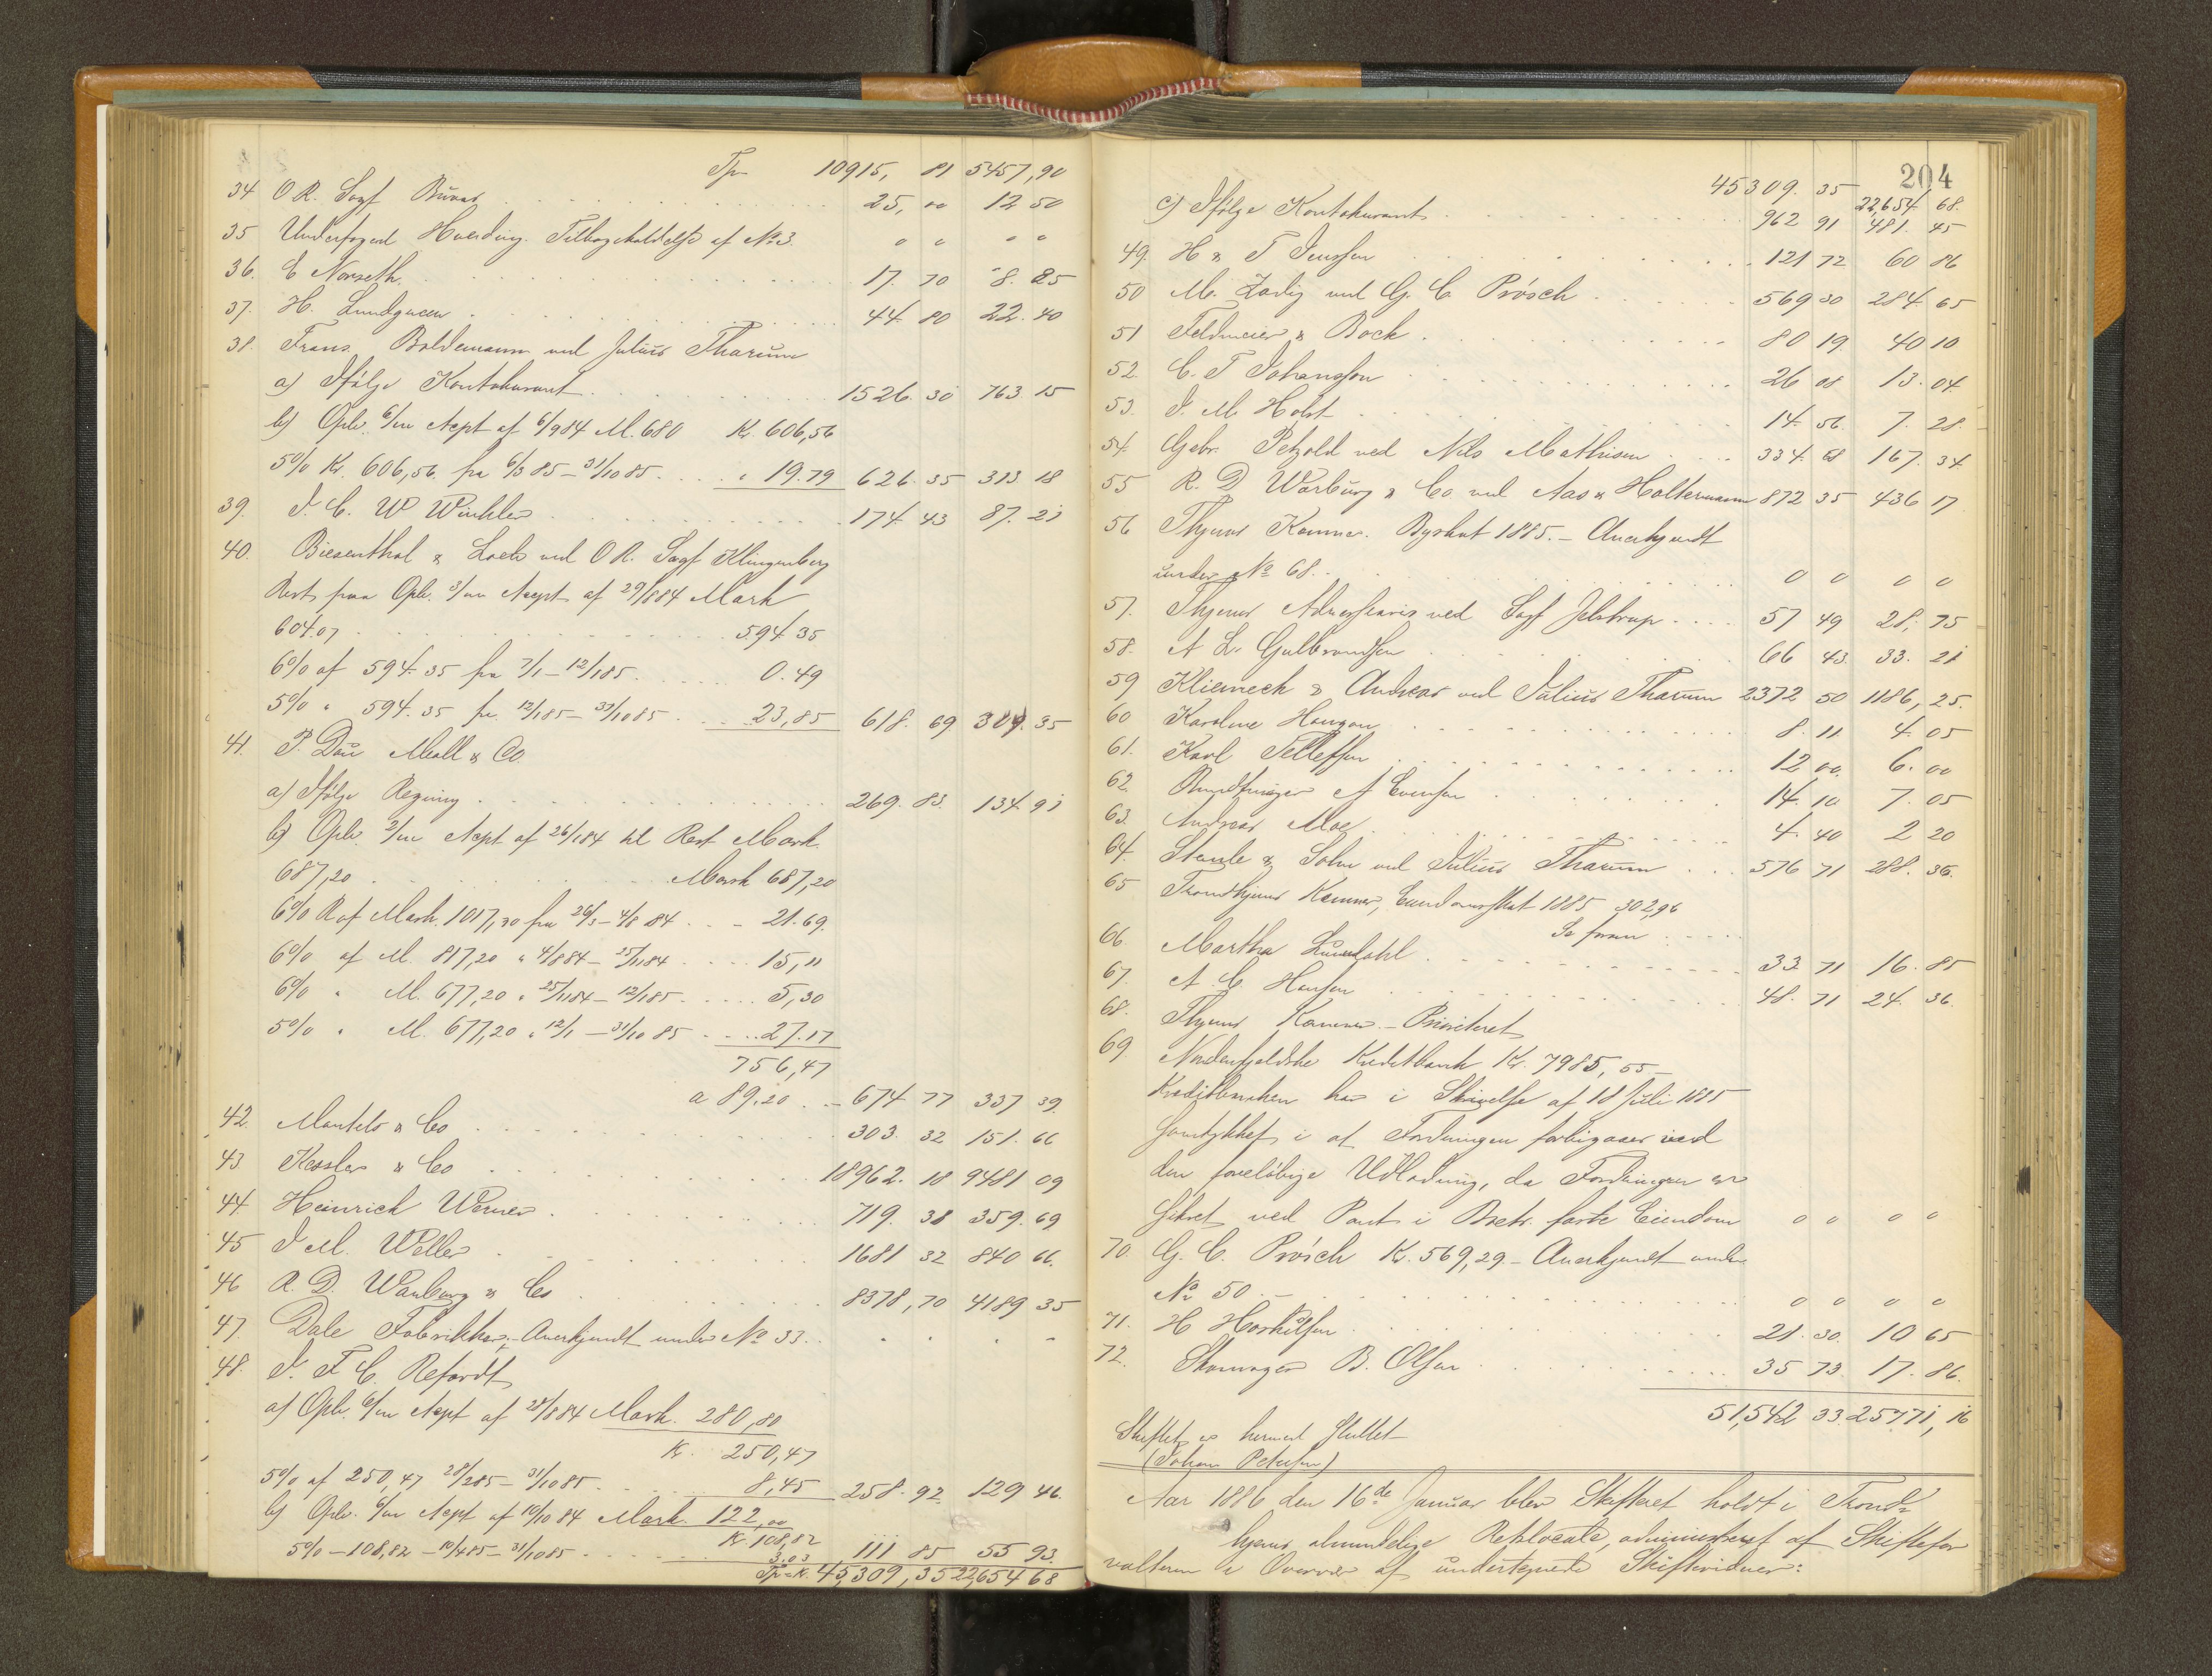 Tpr 10915, 81 5457,90
34 O.R. Sagf Buvas 25,00 12 50
35 Underfoged Hverding. Tilbageholdelse af No 3. 0 0 0 0
36. C Norseth. 17. 70 8. 85
37. H. Lundgreen 44. 80 22. 40
38. Frans Boldemann ved Julius Tharum
a) Ifølge Kontokurant 1526. 30 763. 15
b) Opl. 6/m Acpt af 6/9 84 M. 680 Kr. 606,56
5% Kr. 606,56. fra 6/3 85 – 31/10 85 " 19.79 626. 35 313 18
39. J. C. W Winkler 174. 43 87. 21
40. Biesenthal & Loeb ved O.R. Sagf Klingenberg
Rest paa Opl. 3/m Accept af 29/8 84 Mark
604.07 594. 35
6% af 594. 35 fra 7/1 – 12/1 85 0. 49
5% " 594. 35 fra 12/1 85 – 31/10 85 23,85 618. 69 309. 35
41. P. Dau Mall & Co.
a) Ifølge Regning 269. 83. 134. 91
b) Opl. 2/m Acpt af 26/1 84 til Rest Mark
687,20 Mark 687,20
6% R af Mark. 1017,30 fra 26/3 – 4/8 84 21.69.
6% af M. 817,20 " 4/8 84 – 25/11 84 15,11
6% " M. 677,20 " 25/11 84 – 12/1 85 5,30
5% " M. 677,20 " 12/1 – 31/10 85 27.17
756,47
a 89.20 – 674 77 337 39.
42. Mantels & Co 303. 32 151. 66
43 Kessler & Co 18962. 18 9481 09
44 Heinrich Werner 719. 38 359. 69
45 J. M. Weller 1681 32 840 66.
46 R. D. Warburg & Co 8378,70 4189 35
47. Dale Fabrikker. – Anerkjendt under No 33.
48. J. F. C. Refardt
a) Opl. 6/m Acpt af 28/8 84 Mark. 280,80
Kr. 250,47
5% af 250,47 28/2 85 – 31/10 85 8,45 258. 92 129 46.
b) Opl. 6/m Acpt af 10/10 84 Mark. 122,00
Kr 108,82
5% – 108,82 – 10/4 85 – 31/10 85 3,03 111 85 55 93.
Tpr Kr. 45,309,35 22,654 68
204
45309. 35 22,654 68.
c) Ifølge Kontokurant 962 91 481. 45
49. H & T Jenssen 121 72 60 86
50 M. Zadig ved G. C. Prösch 569 30 284 65
51 Feldmeier & Bock 80 19. 40 10
52. C. T Johanssen 26 08 13. 04.
53. J. M. Holst 14. 56 7. 28.
54. Gebr. Petzold ved Nils Mathisen 334. 68 167. 34
55 R. D Warburg & Co ved Aas & Haltermann 872 35 436 17
56 Thjems Kæmner. Byskat 1885. – Anerkjendt
under No 68. 0 0 0 0
57. Thjems Adresseavis ved Sagf Jelstrup 57 49 28, 75
58. A L. Gulbrandsen 66 43. 33. 21
59 Kliemeck & Andreas ved Julius Tharum 2372 50 1186, 25.
60 Karoline Haugan 8. 11 4. 05
61. Karl Tellefsen 12 00. 6. 00
62. Bundtmager A Evensen 14. 10 7. 05
63. Andreas Moe 4. 40 2 20
64. Staule & Sohn ved Julius Tharum 576 71 288. 36.
65 Trondhjems Kæmner, Eiendomsskat 1885 302,96
Se foran
66 Martha Lundahl 33 71 16. 85
67. A. C. Hansen 48. 71 24. 36.
68. Thjems Kæmner. – Prioriteret
69. Nordenfjeldske Kreditbank Kr. 7985,55 –
Kreditbanken har i Skrivelse af 18 Juli 1885
samtykket i at Fordringen forbigaaes ved
den foreløbige Udlodning, da Fordringen er
sikret ved Pant i Boets faste Eiendom 0 0 0 0
70. G. C. Prösch Kr. 569,29. – Anerkjendt under
No 50. – 0 0 0 0
71. H Horkilsen 21. 30. 10 65
72. Skomager B. Olsen 35 73. 17. 86.
51,542 33. 25771, 16
Skiftet er hermed sluttet
(Johan Petersen)
Aar 1886 den 16de Januar blev Skifteret holdt i Trond-
hjems almindelige Retslocale, administreret af Skiftefor
valteren i Overvær af undertegnede Skiftevidner: